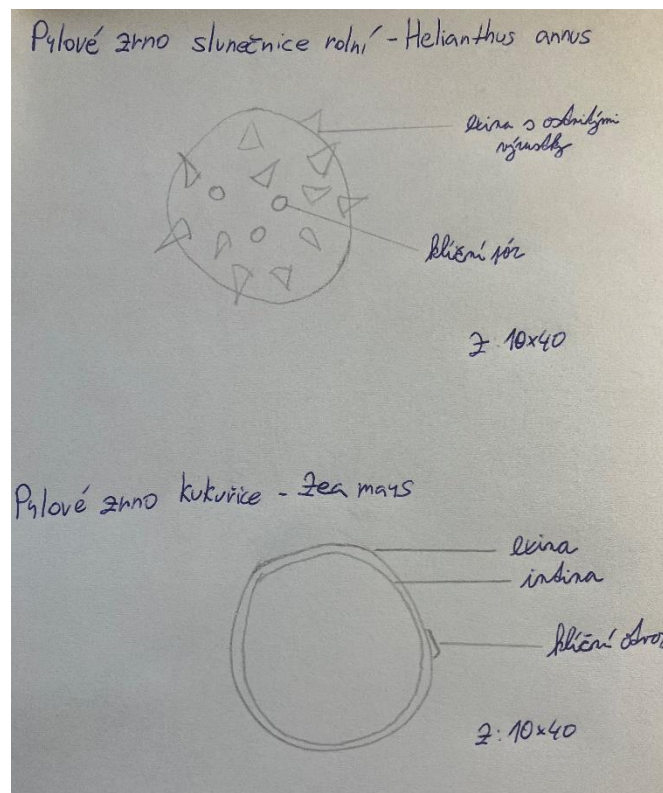 Pylové zrno slunečnice rolní - Helianthus annus
exina s ostnitými
výrustky
klíční pór
Z: 10x40
Pylové zrno kukuřice - Zea mays
exina
intina
klíční otvor
Z: 10x40